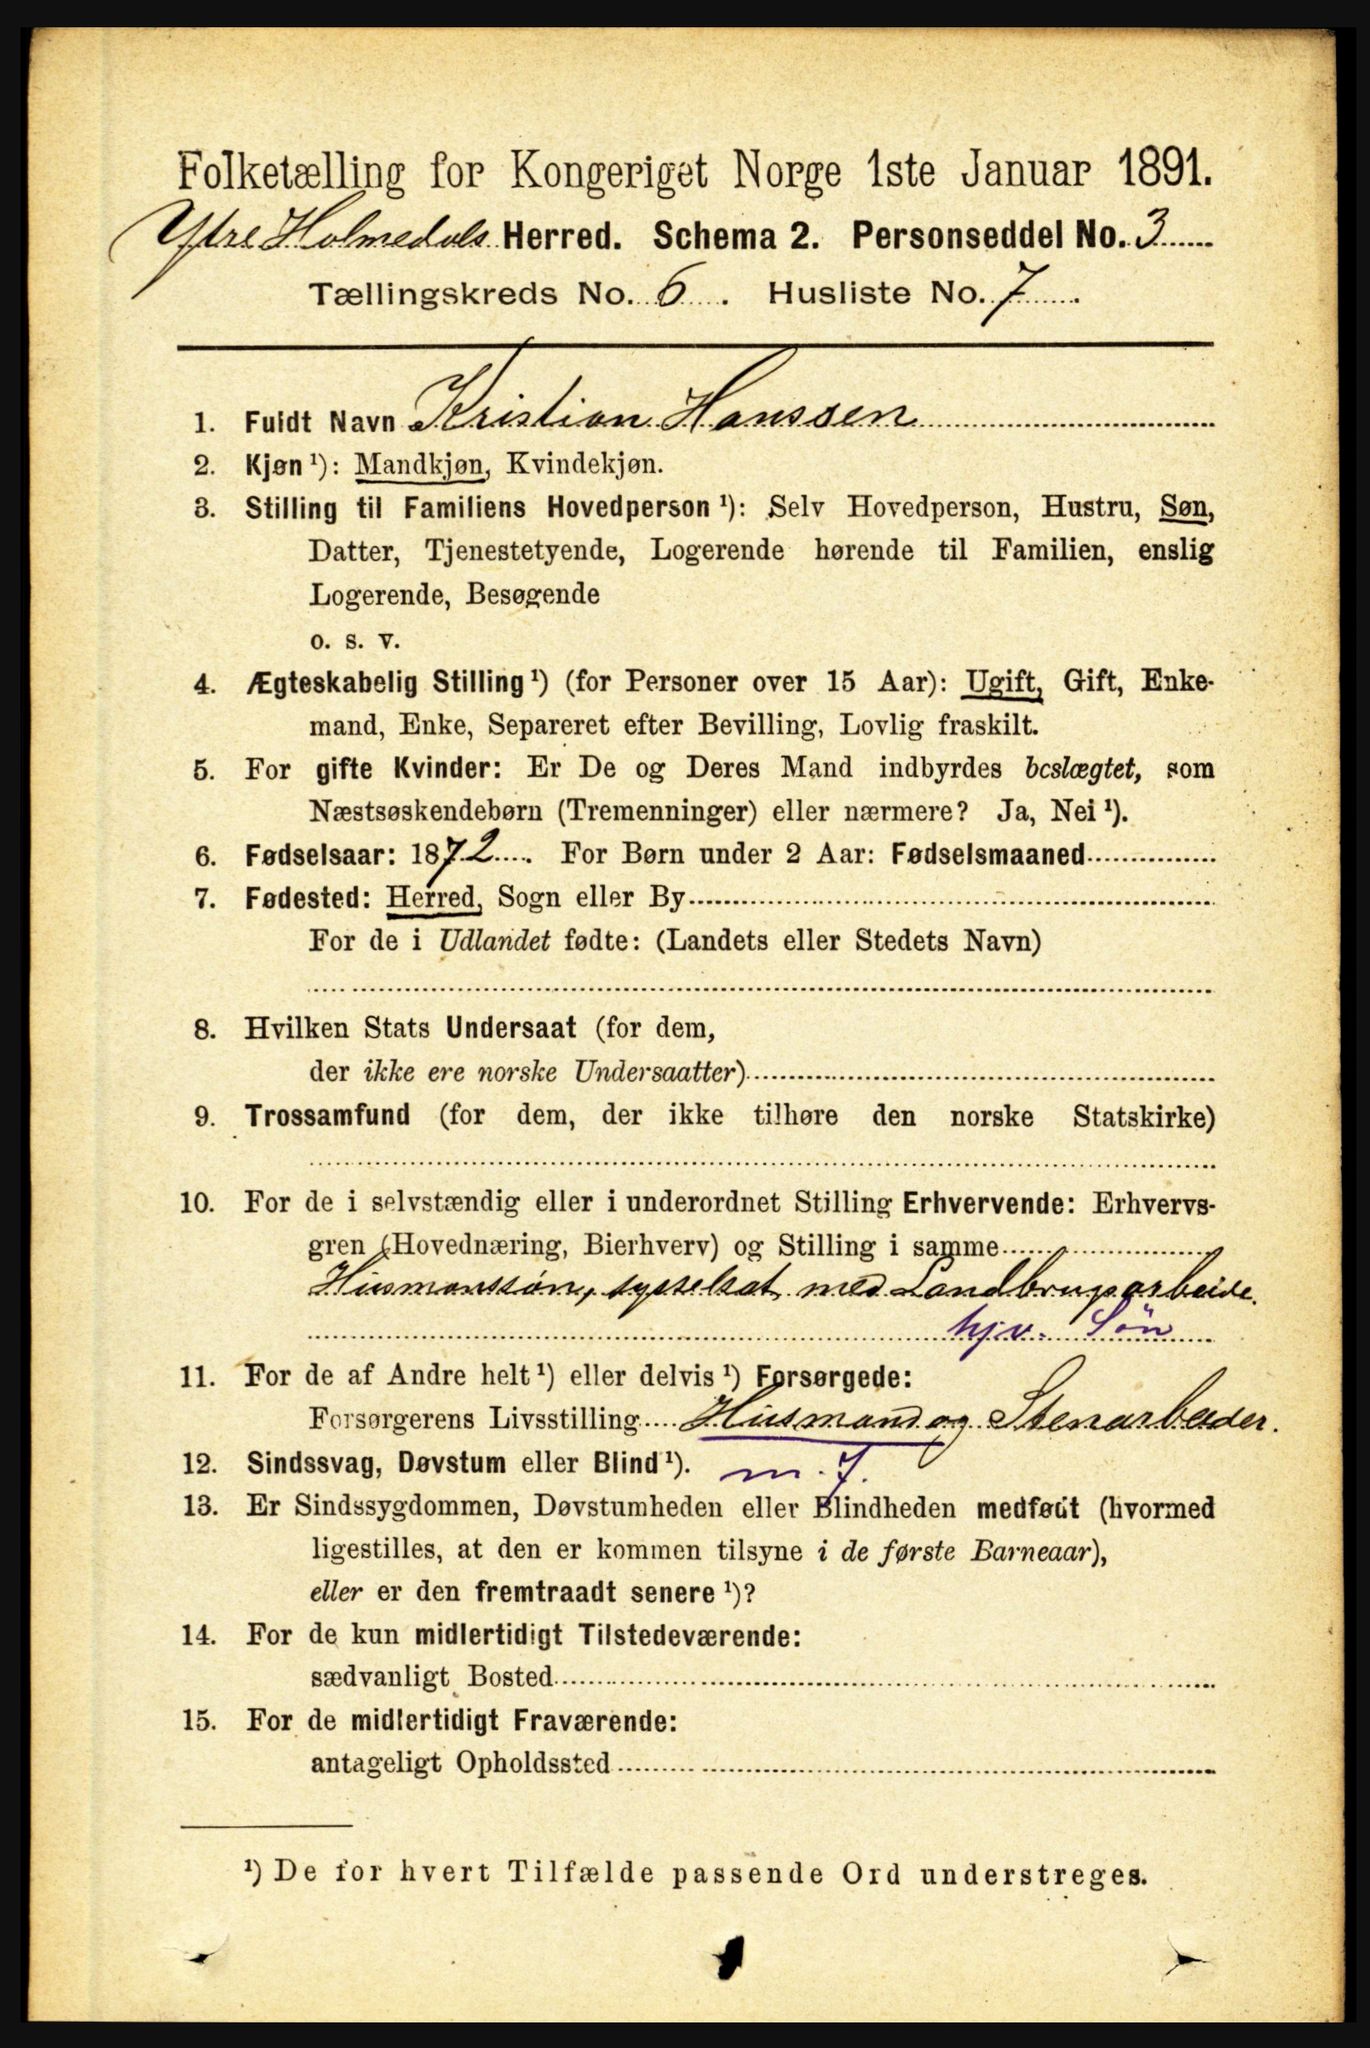 Folketælling for Kongeriget Norge 1ste Januar 1891.
Ytre Holmedals Herred. Schema 2. Personseddel No. 3
Tællingskreds No. 6. Husliste No. 7.
1. Fuldt Navn Kristian Hanssen
2. Kjøn ¹): Mandkjøn, Kvindekjøn.
3. Stilling til Familiens Hovedperson ¹): Selv Hovedperson, Hustru, Søn,
Datter, Tjenestetyende, Logerende hørende til Familien, enslig
Logerende, Besøgende
o. s. v.
4. Ægteskabelig Stilling ¹) (for Personer over 15 Aar): Ugift, Gift, Enke-
mand, Enke, Separeret efter Bevilling, Lovlig fraskilt.
5. For gifte Kvinder: Er De og Deres Mand indbyrdes beslægtet, som
Næstsøskendebørn (Tremenninger) eller nærmere? Ja, Nei ¹).
6. Fødselsaar: 1872. For Børn under 2 Aar: Fødselsmaaned
7. Fødested: Herred, Sogn eller By
For de i Udlandet fødte: (Landets eller Stedets Navn)
8. Hvilken Stats Undersaat (for dem,
der ikke ere norske Undersaatter)
9. Trossamfund (for dem, der ikke tilhøre den norske Statskirke)
10. For de i selvstændig eller i underordnet Stilling Erhvervende: Erhvervs-
gren (Hovednæring, Bierhverv) og Stilling i samme
Husmanssön, sysselsat med Landbrugsarbeide.
hjv. Sön
11. For de af Andre helt ¹) eller delvis ¹) Forsørgede:
Forsørgerens Livsstilling Husmand og Stenarbeider.
12. Sindssvag, Døvstum eller Blind ¹). m. J.
13. Er Sindssygdommen, Døvstumheden eller Blindheden medfødt (hvormed
ligestilles, at den er kommen tilsyne i de første Barneaar),
eller er den fremtraadt senere ¹)?
14. For de kun midlertidigt Tilstedeværende:
sædvanligt Bosted
15. For de midlertidigt Fraværende:
antageligt Opholdssted
¹) De for hvert Tilfælde passende Ord understreges.